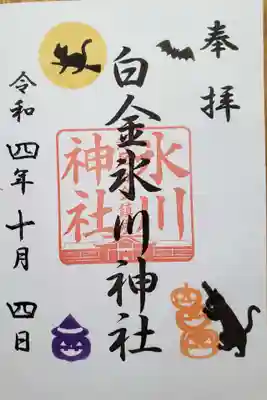 奉拝
白金氷川神社
氷川
神社
令和四年十月四日